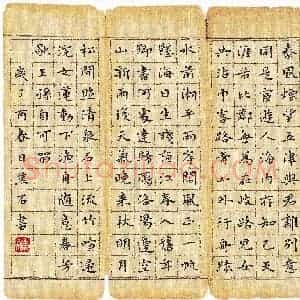 秦風煙望五津與君離別意
同是宦遊人海內存知己天
涯若比鄰無為在歧路兒女
共沾巾客路青山外行舟綠
水前潮平兩岸闊風正一帆
懸海日生殘夜江春入舊年
鄉書何處達歸雁洛陽邊空
山新雨後天氣晚來秋明月
松間照清泉石上流竹喧歸
浣女蓮動下漁舟隨意春芳
歇王孫自可留
歲丁酉春日石書